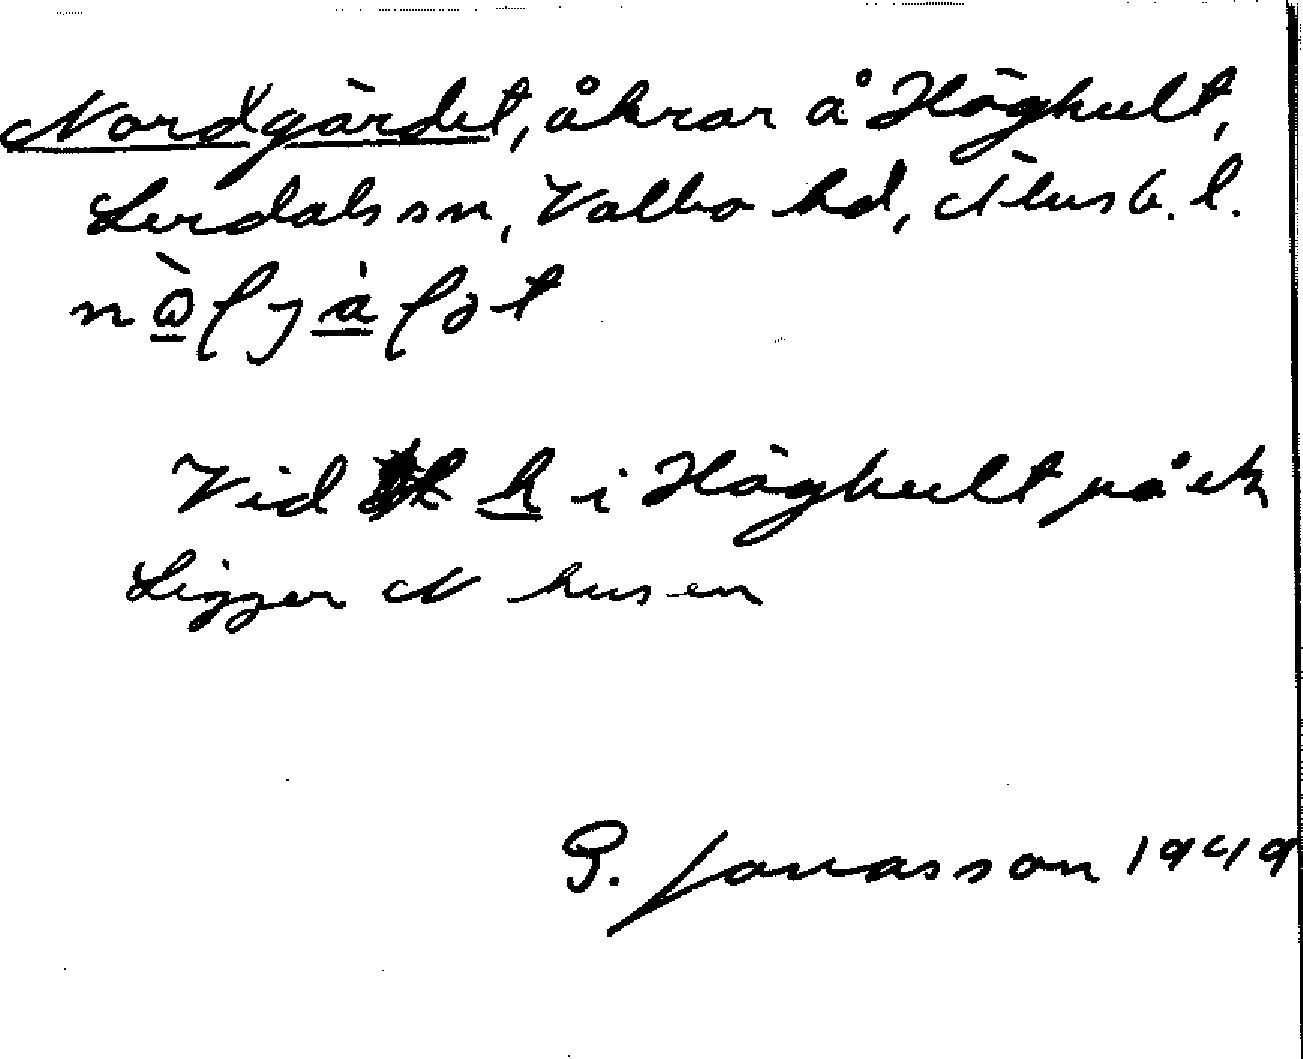 Nordgärdet, åkrar å Höghult,
Lerdals sn, Valbo hd, Älvsb. l.
Vid h i Höghult på ek
Ligger N husen
G. Jonasson 1949